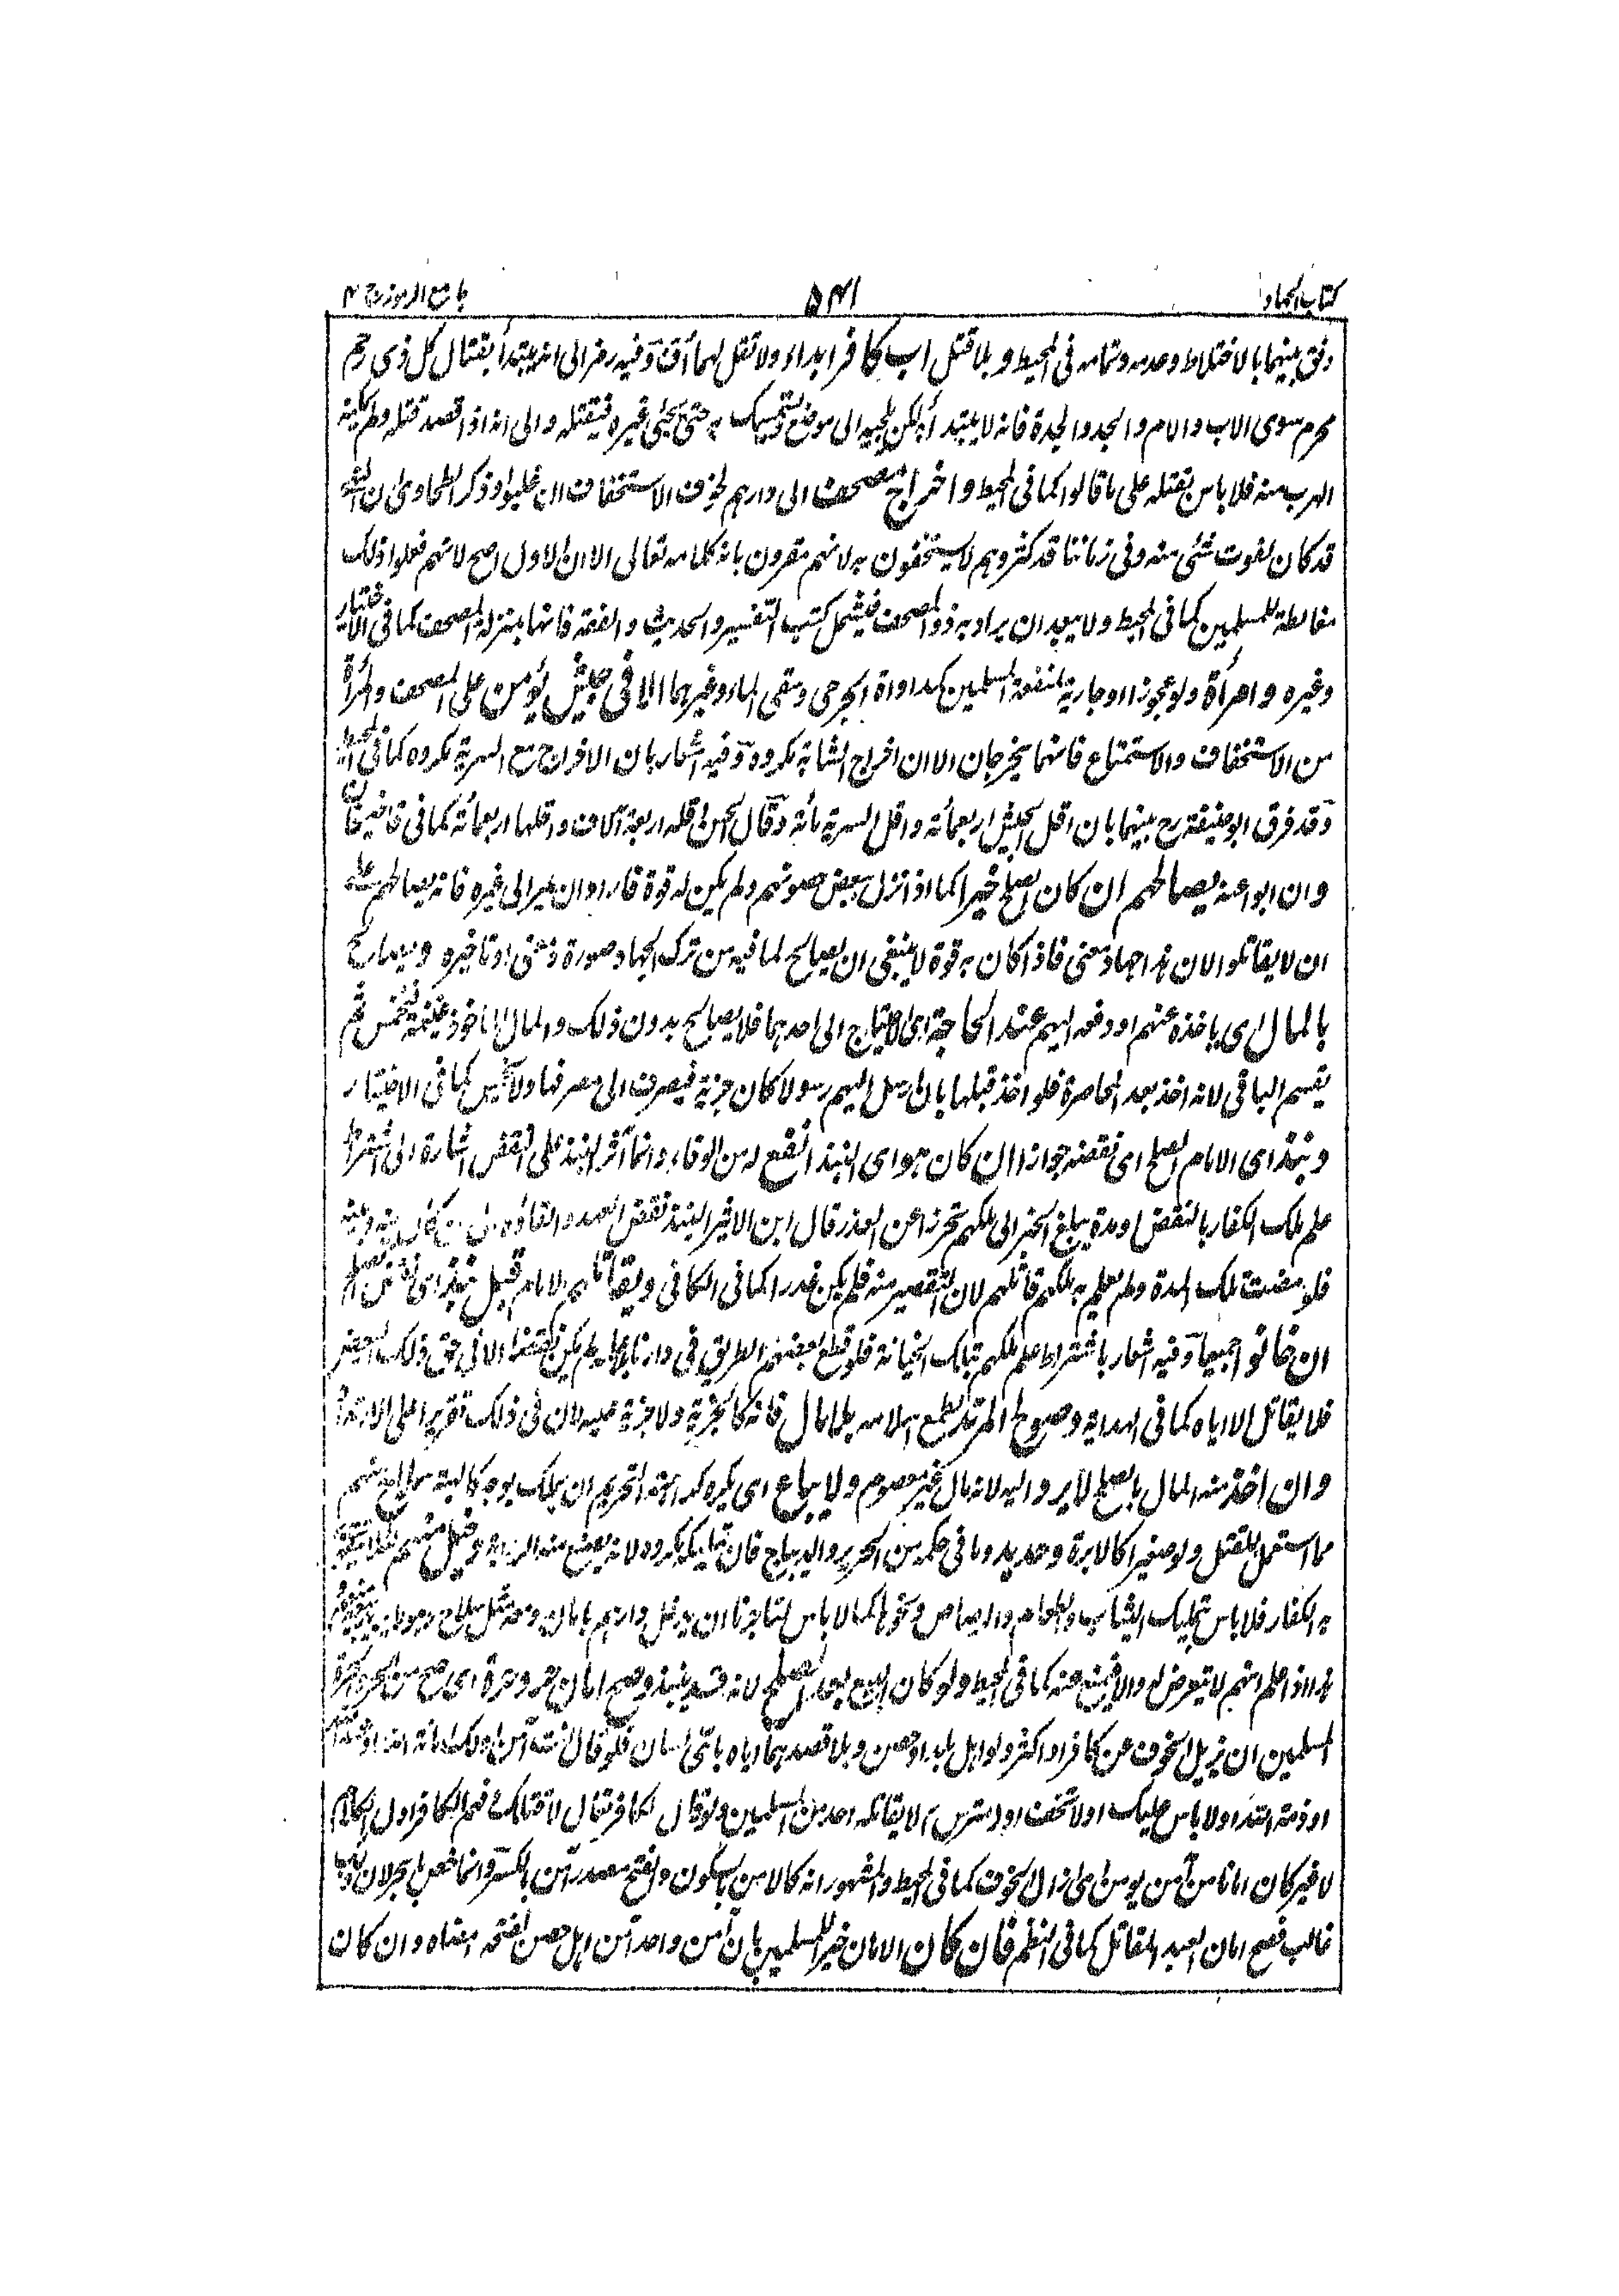 كتاب الجهاد ۵۴۱ جامع الرموز ج ۴
وفق بينهما بالاختلاط وعدمه وتمامه فى المحيط و بلا قتل اب كافر ابداء ولا تقل لهما أف وفيه رمز الى انه يبتدأ بقتال كل ذى رحم
محرم سوى الاب والام والجد والجدة فانه لا يبتدأ لكن يلجيه الى موضع ويتمسك به حتى يجئ غيره فيقتله والى انه اذا قصد قتله ولم يمكنه
الهرب منه فلا باس بقتله على ما قالوا كما فى المحيط و اخراج مصحف الى دارهم لخوف الاستخفاف ان غلبوا وذكر الطحاوى ان النهى
قد كان لفوت شئى منه وفى زماننا قد كثر وهم لا يستخفون به لانهم مقرون بانه كلامه تعالى الا ان الاول اصح لانهم فعلوا ذلك
مغالطة للمسلمين كما فى المحيط ولا يبعد ان يراد به ذو المصحف فيشمل كتب التفسير والحديث والفقه فانها بمنزلة المصحف كما فى الاختيار
وغيره و امرأة ولو عجوزا او جارية لمنفعة المسلمين كمداواة الجرحى وسقى الماء وغيرهما الا فى جيش يؤمن على المصحف والمرأة
من الاستخفاف والاستمتاع فانهما يخرجان الا ان اخراج الشابة مكروه وفيه اشعار بان الاخراج مع السرية مكروه كما فى المحيط
وقد فرق ابو حنيفة رح بينهما بان اقل الجيش اربعمائة واقل السرية مائة وقال الحسن اقله اربعة آلاف واقلها اربعمائة كما فى قاضيخان
وان ابوا عنه يصالحهم ان كان الصلح خيرا كما اذا نزل ببعض حصونهم ولم يكن له قوة فاراد ان يمير الى غيره فانه يصالحهم على
ان لا يقاتلوا لان هذا جهاد معنى فاذا كان به قوة لا ينبغى ان يصالح لما فيه من ترك الجهاد صورة ومعنى او تاخيره ويصالح
بالمال اى ياخذه عنهم او دفعه اليهم عند الحاجة اى الاحتياج الى احدهما فلا يصالح بدون ذلك والمال الماخوذ غنيمة فيخمس ثم
يقسم الباقى لانه اخذ بعد المحاصرة فلو اخذ قبلها بان ارسل اليهم رسولا كان جزية فيصرف الى مصرفها ولا يخمس كما فى الاختيار
و نبذ اى الامام الصلح اى نقضه جوازا ان كان هو اى النبذ انفع له من الوفاء وانما آثر النبذ على النقض اشارة الى اشتراط
علم ملك الكفار بالنقض او مدة يبلغ الخبر الى ملكهم تحرزا عن الغدر قال ابن الاثير النبذ نقض العهد والقاؤه الى من كان بينه وبينه
فلو مضت تلك المدة ولم يعلم به ملكهم قاتلهم لان التقصير منه فلم يكن غدرا كما فى الكافى ويقاتلهم الامام قبل نبذ اى نقض الصلح
ان خانوا جميعا وفيه اشعار باشتراط علم ملكهم بتلك الخيانة فلو قطع بعضهم الطريق فى دارنا بلا علمه لم يكن نقضا الا فى حق ذلك البعض
فلا يقاتل الا اياه كما فى الهداية وصولح المرتد لطمع اسلامه بلا مال فانه كالجزية ولا جزية عليه لان فى ذلك تقريرا على الارتداد
وان اخذ منه المال بالصلح لا يرد اليه لانه مال غير معصوم ولا يباع اى يكره كراهة التحريم ان يملك بوجه كالهبة سلاح منهم
مما استعمل للقتل ولو صغيرا كالابرة وحديد وما فى حكمه من الحرير والديباج فان تمليكه مكروه لانه يصنع منه الراية وخيل منهم
به الكفار فلا باس بتمليك الثياب والطعام والرصاص ونحوها كما لا باس لتاجرنا ان يدخل دارهم بامان ومعه مثل سلاح
هذا اذا علم انهم لا يتعرض له والا فيمنع عنه كما فى المحيط ولو كان البيع بعد الصلح لانه قد ينبذ وصح امان حر وحرة اى صح من الحر والحرة
المسلمين ان يزيل الخوف عن كافر او اكثر ولو اهل بلد او حصن وبلا قصدهما اياه باى لسان فلو قال انت آمن او لك امانة الله او عهد الله
او ذمة الله او لا باس عليك او لا تخف او مترس لا يقاتله احد من المسلمين ولو قال لكافر تعال لاقتلك ففهم الكافر اول الكلام
لا غير كان امانا من آمن يومن اى زال الخوف كما فى المحيط والمشهور انه كالامن بالسكون والفتح مصدر آمن بالكسر وانما خص بالحر لان
غالب فصح امان العبد المقاتل كما فى النظم فان كان الامان خيرا للمسلمين بان آمن واحد اهل حصن لفتحه امضاه وان كان